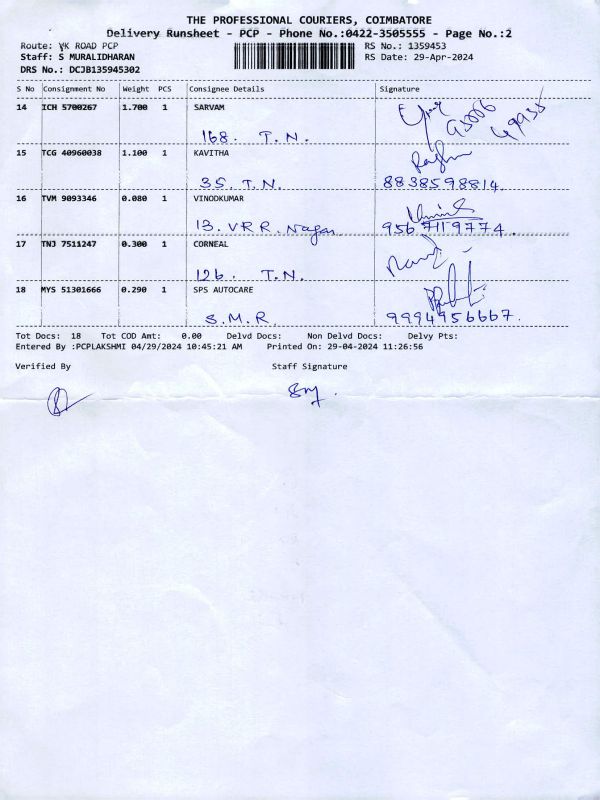 THE PROFESSIONAL COURIERS, COIMBATORE
Delivery Runsheet - PCP - Phone No.:0422-3505555 - Page No.:2
Route: VK ROAD PCP RS No.: 1359453
Staff: S MURALIDHARAN RS Date: 29-Apr-2024
DRS No.: DCJB135945302
S No Consignment No Weight PCS Consignee Details Signature
14 ICH 5700267 1.700 1 SARVAM
168. T.N.
15 TCG 40960038 1.100 1 KAVITHA
35. T.N. 8838598814.
16 TVM 9093346 0.080 1 VINODKUMAR
13. V.R.R. Nagar 9567119774.
17 TNJ 7511247 0.300 1 CORNEAL
126. T.N.
18 MYS 51301666 0.290 1 SPS AUTOCARE
S.M.R. 9994956667.
Tot Docs: 18 Tot COD Amt: 0.00 Delvd Docs: Non Delvd Docs: Delvy Pts:
Entered By :PCPLAKSHMI 04/29/2024 10:45:21 AM Printed On: 29-04-2024 11:26:56
Verified By Staff Signature